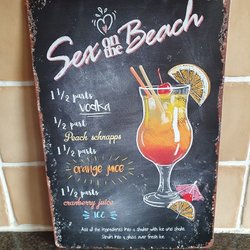 Sex on the Beach
1 1/2 parts
vodka
1/2 part
Peach schnapps
1 1/2 parts
orange juice
1 1/2 parts
cranberry juice
ICE
Add all the ingredients into a shaker with ice and shake.
Strain into a glass over fresh ice.